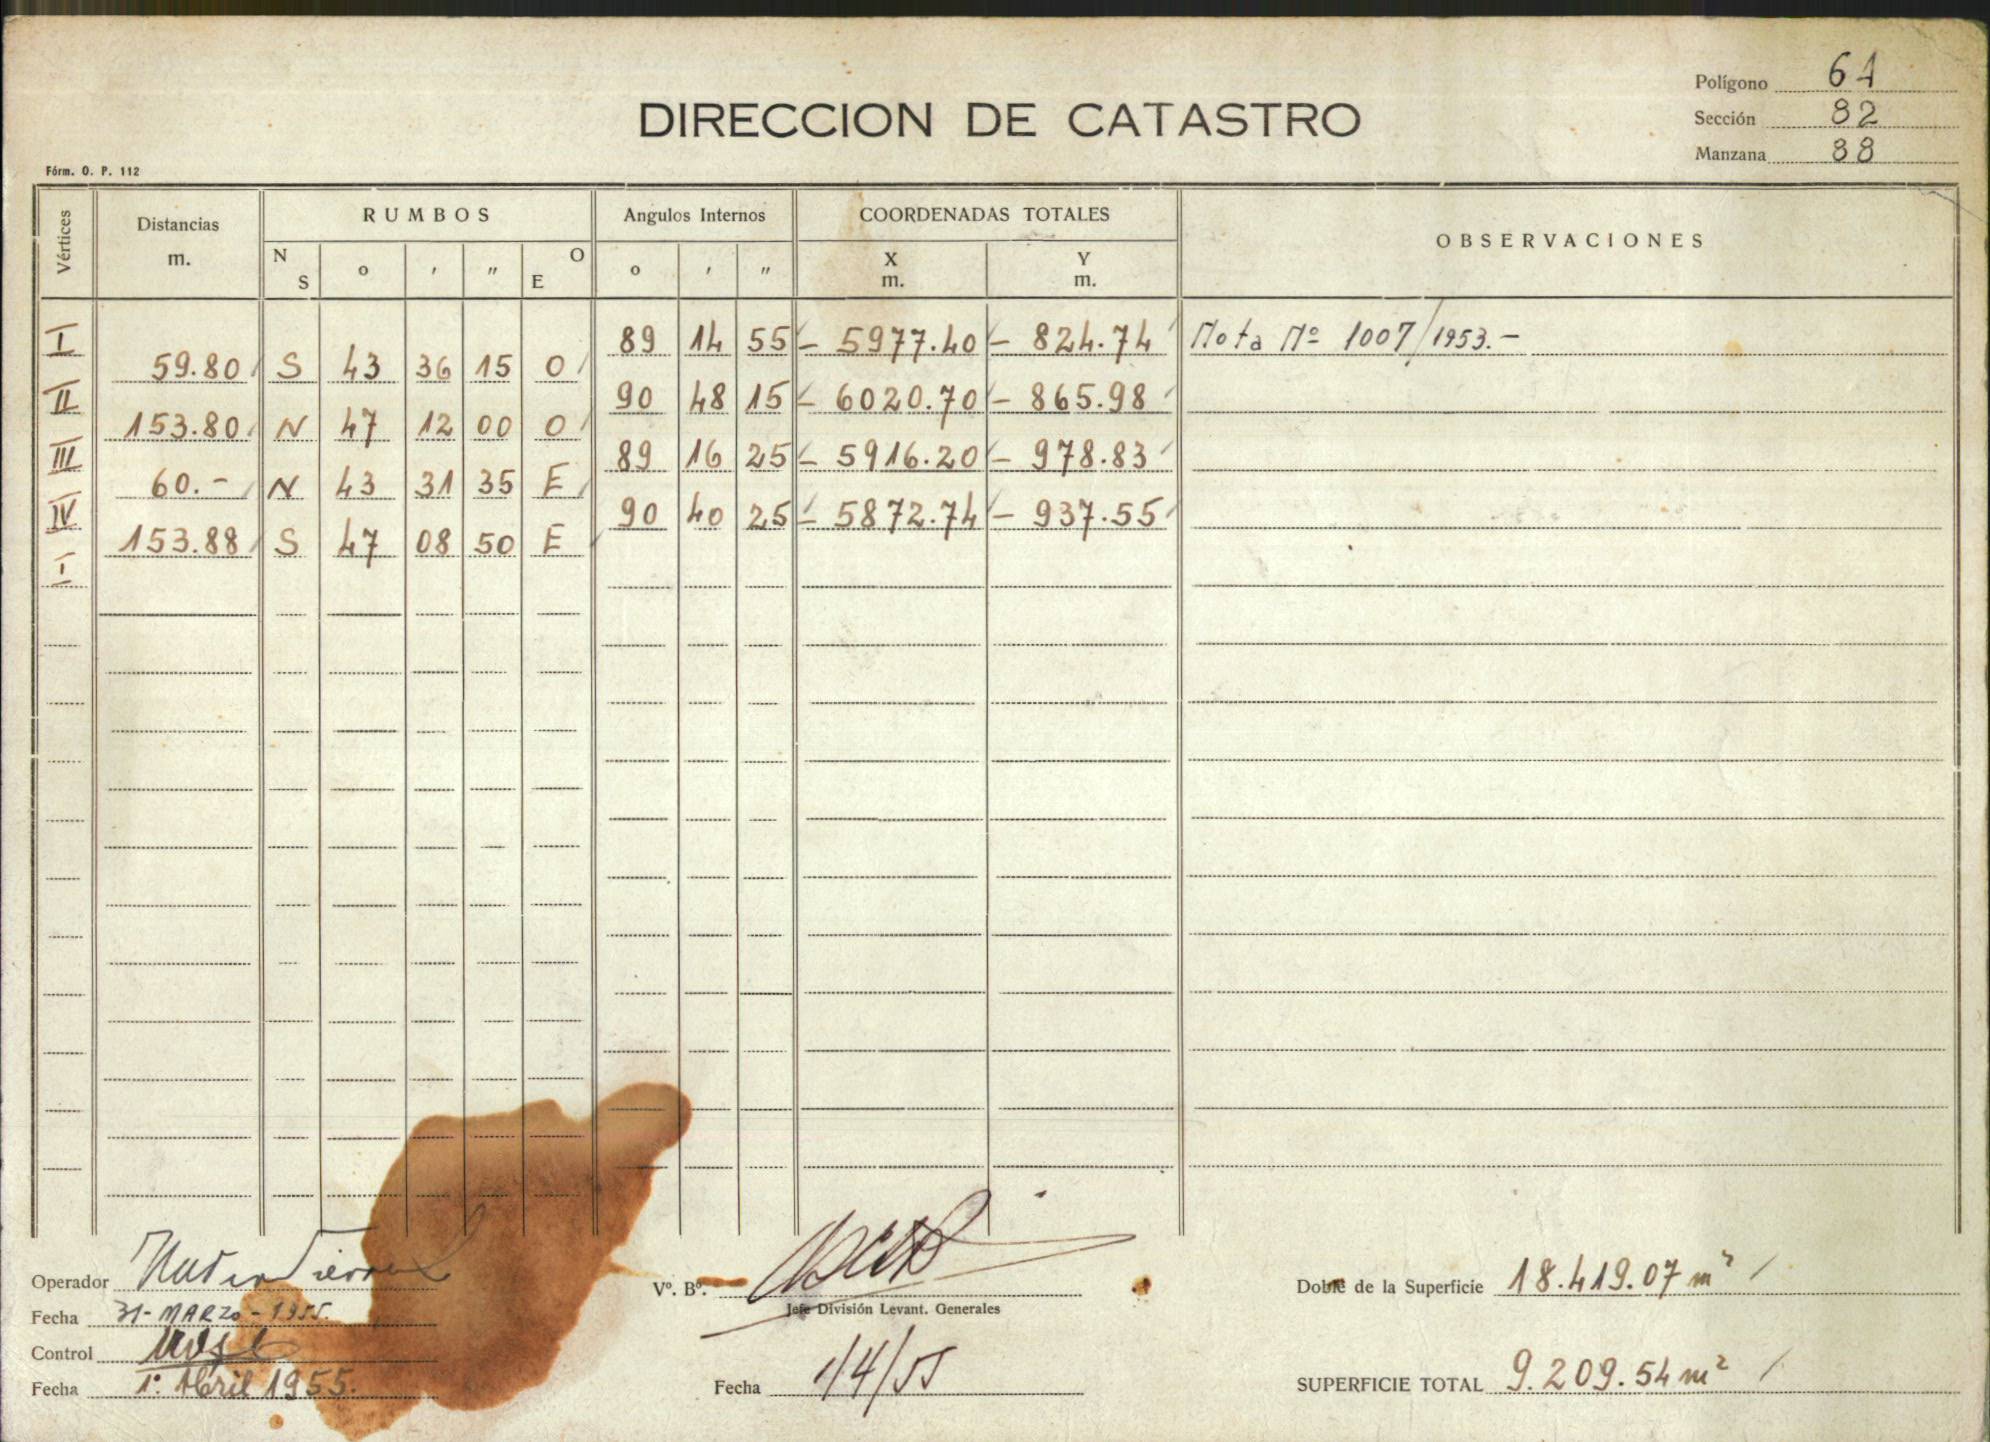 Polígono 61
DIRECCION DE CATASTRO
Sección 82
Manzana 88
Fórm. O. P. 112
Vértices Distancias m. RUMBOS Angulos Internos COORDENADAS TOTALES OBSERVACIONES
N S o ' " O E o ' " X m. Y m.
I 89 14 55 - 5977.40 - 824.74 Nota Nº 1007/1953.-
59.80 S 43 36 15 O
II 90 48 15 - 6020.70 - 865.98
153.80 N 47 12 00 O
III 89 16 25 - 5916.20 - 978.83
60.- N 43 31 35 E
IV 90 40 25 - 5872.74 - 937.55
153.88 S 47 08 50 E
I
Operador
Vº. Bº.
Doble de la Superficie 18.419.07 m²
Jefe División Levant. Generales
Fecha 31-MARZO-1955.
Control
Fecha 1º. Abril 1955.
Fecha 1/4/55
SUPERFICIE TOTAL 9.209.54 m²